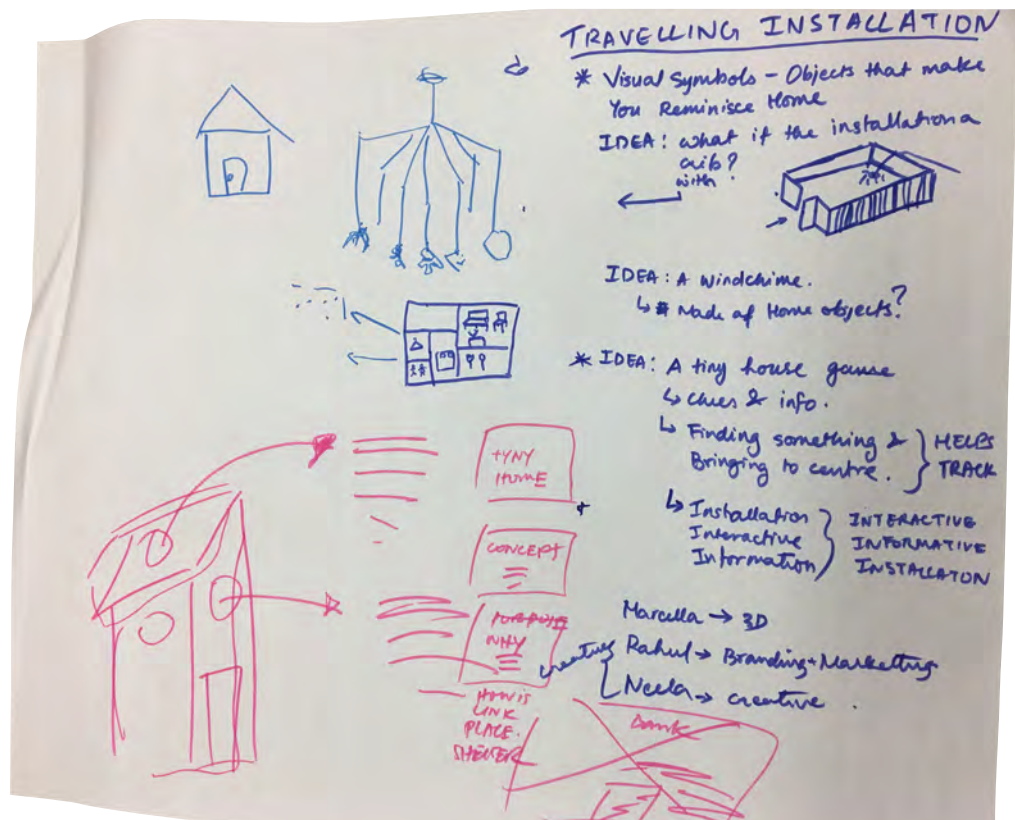 TRAVELLING INSTALLATION
* Visual Symbols - Objects that make
You Reminisce Home
IDEA: what if the installation a
crib?
with
IDEA: A windchime.
↳ Made of Home objects?
* IDEA: A tiny house game
↳ clues & info.
↳ Finding something &
Bringing to centre.
HELPS
TRACK
↳ Installation
Interactive
Information
INTERACTIVE
INFORMATIVE
INSTALLATON
Marcella → 3D
Rahul → Branding + Marketting
Neela → creative
creative
TYNY
HOME
CONCEPT
PURPOSE
WHY
LINK
PLACE.
SHELTER